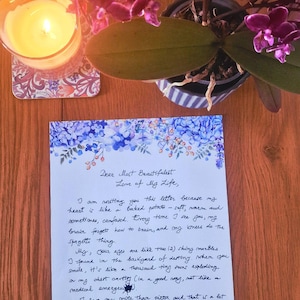 Dear Most Beautifulest
Love of My Life,
I am writing you this letter because my
heart is like a baked potato - soft, warm and
sometimes, confused. Every time I see you, my
brain forgets how to brain, and my knees do the
spaghetti thing.
My, your eyes are like two (2) shiny marbles
I found in the backyard of destiny. When you
smile, it's like a thousand tiny suns exploding
in my chest cavity (in a good way, not like a
medical emergency
than butter and that is a lot